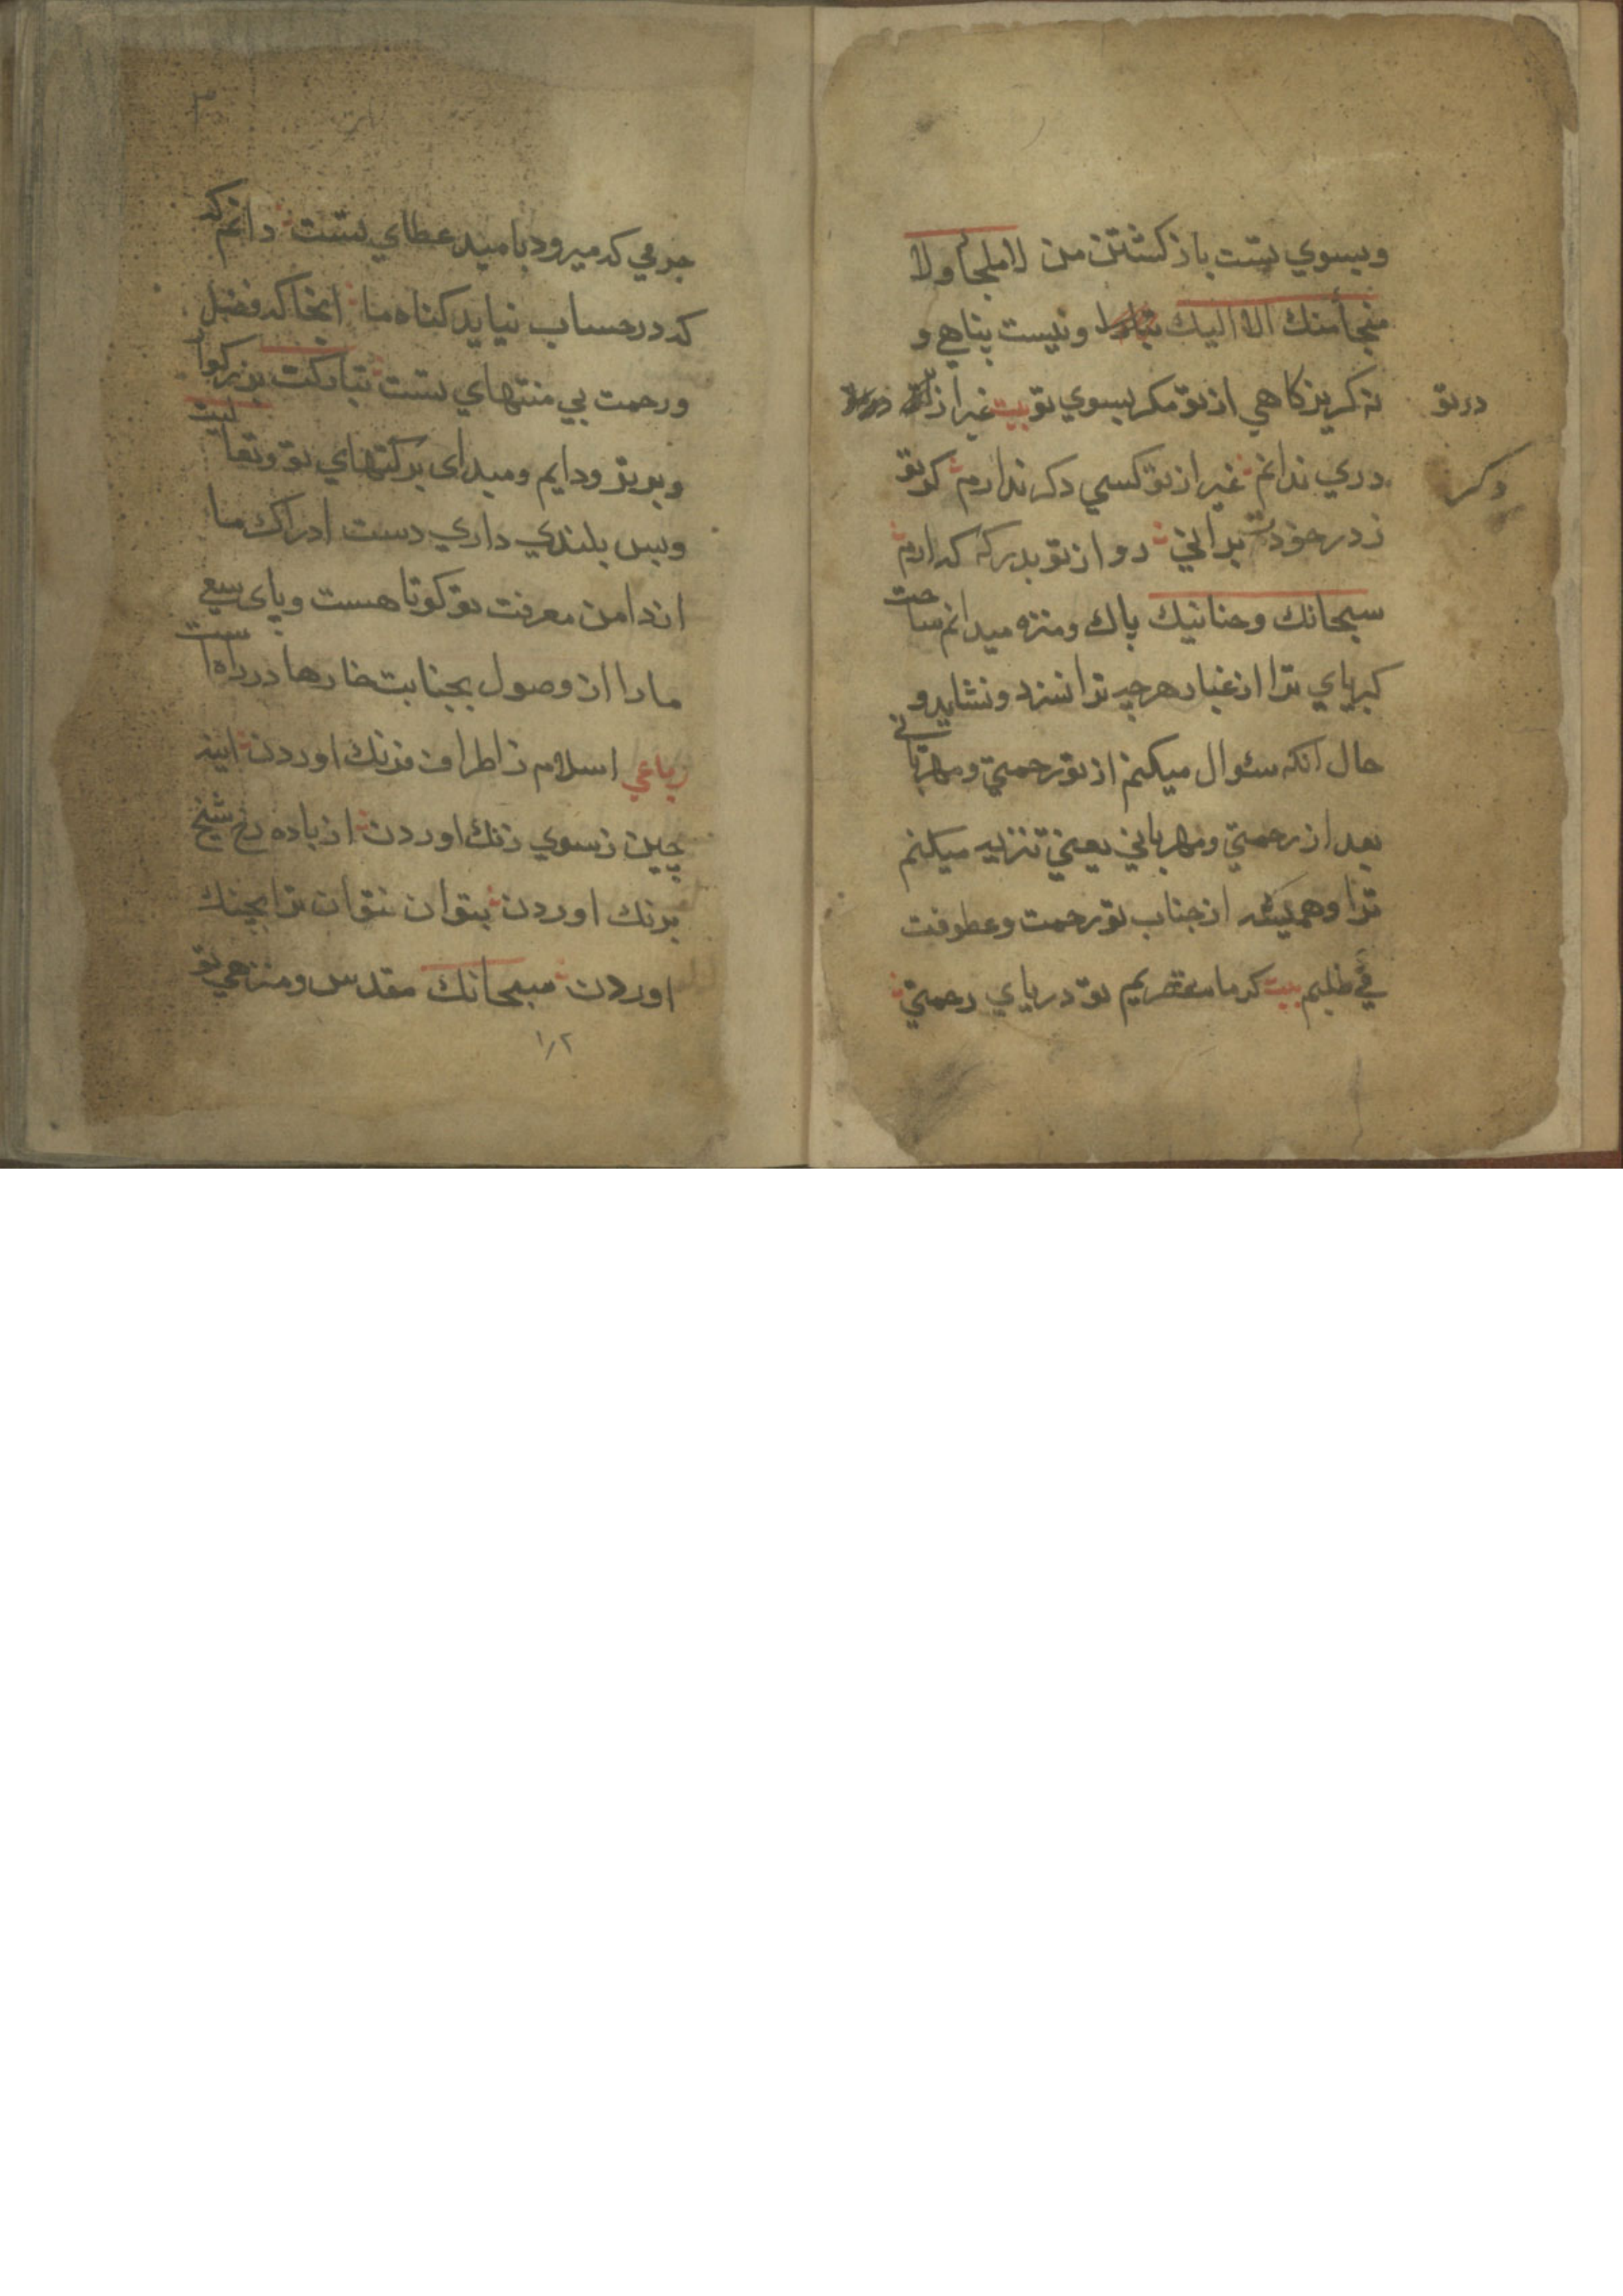 وبسوي تست باز كشتن من لا ملجأ ولا
منجأ منك الا اليك ونيست پناهي و
نه كريزكاهي از تو مكر بسوي تو بيت غير از
در تو
دري ندانم غير از تو كسي دكر ندارم كر تو
دكر
ز در خودت براني رو از تو بدركه كه ارم
سبحانك وحنانيك پاك ومنزه ميدانم ساحت
كبرياي ترا از غبار هرچه ترا نسزد ونشايد و
حال انكه سئوال ميكنم از تو رحمتي ومهرباني
بعد از رحمتي ومهرباني يعني تنزيه ميكنم
ترا وهميشه از جناب تو رحمت وعطوفت
مي طلبم بيت كر ما مقصريم تو درياي رحمتي
جرمي كه ميرود باميد عطاي تست دانم كه
كه در حساب نيايد كناه ما انجا كه فضل
ورحمت بي منتهاي تست تباركت بزركوار
وبرتر ودايم ومبداى بركتهاي تو وتعاليت
وبس بلندي داري دست ادراك ما
از دامن معرفت تو كوتاهست وپاى سعي
مارا از وصول بجنابت خارها در راه است
رباعي اسلام ز اطراف فرنك اوردن اينه
چين ز سوي زنك اوردن از باده رخ شيخ
برنك اوردن بتوان نتوان ترا بچنك
اوردن سبحانك مقدس ومنزهي تو